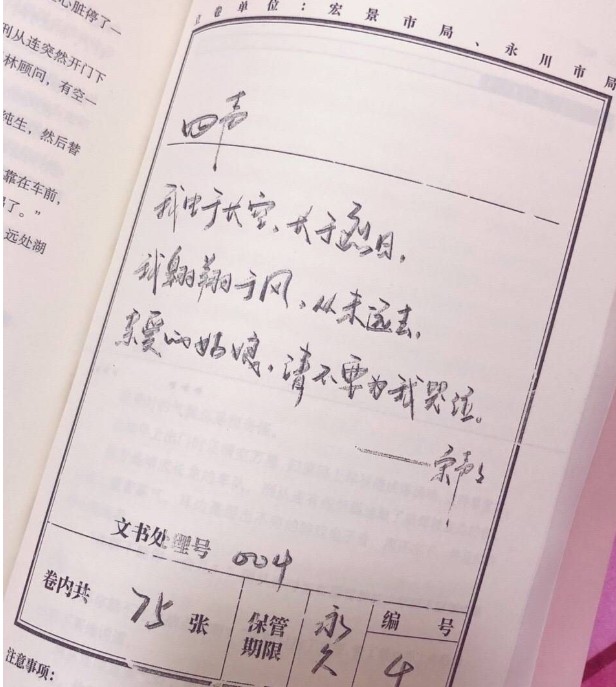 心脏停了一
刑从连突然开门下
林顾问，有空一
纯生，然后替
靠在车前，
了。”
远处湖
卷单位：宏景市局、永川市局
四声
我生于长空，长于烈日，
我翱翔于风，从未远去。
亲爱的姑娘，请不要为我哭泣。
——宋声声
文书处理号 004
卷内共 75 张
保管期限
永久
编号
4
注意事项：